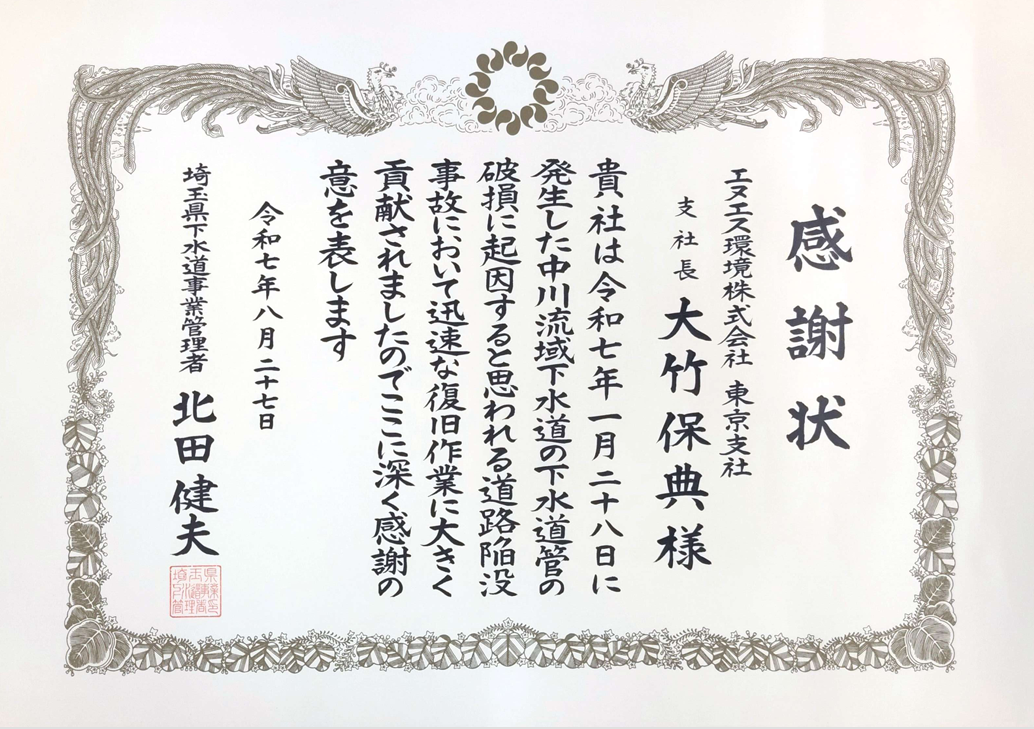 感謝状
エヌエス環境株式会社 東京支社
支社長 大竹保典様
貴社は令和七年一月二十八日に
発生した中川流域下水道の下水道管の
破損に起因すると思われる道路陥没
事故において迅速な復旧作業に大きく
貢献されましたのでここに深く感謝の
意を表します
令和七年八月二十七日
埼玉県下水道事業管理者 北田健夫